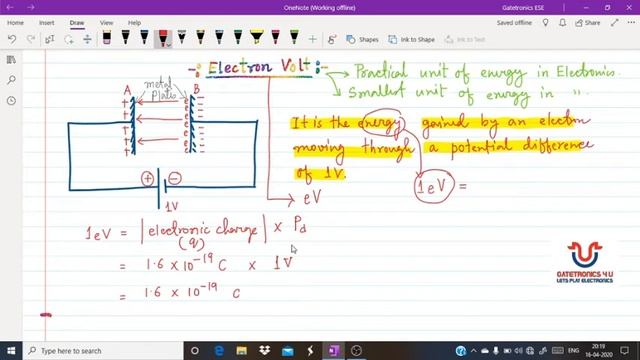 OneNote (Working offline)
Gatetronics ESE
File
Home
Insert
Draw
View
Help
Saved offline
Share
Ink to Shape
Ink to Text
-: Electron Volt :-
Practical unit of energy in Electronics.
Smallest unit of energy in " .
A metal B
Plates
It is the energy gained by an electron
moving through a potential difference
of 1V.
+ -
1V
eV
1eV =
1eV = |electronic charge| × Pd
(q)
= 1.6 × 10⁻¹⁹ C × 1V
= 1.6 × 10⁻¹⁹ C
GATETRONICS 4 U
LETS PLAY ELECTRONICS
ENG
20:19
16-04-2020